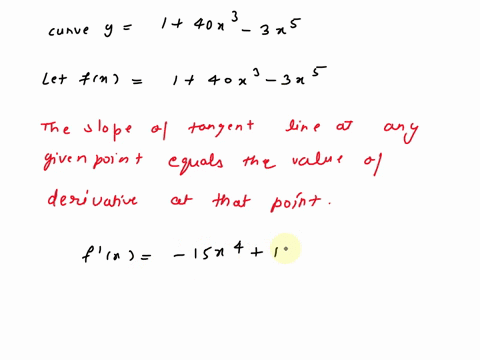 curve y = 1 + 40x³ - 3x⁵
Let f(x) = 1 + 40x³ - 3x⁵
The slope of tangent line at any
given point equals the value of
derivative at that point.
f'(x) = - 15x⁴ + 1